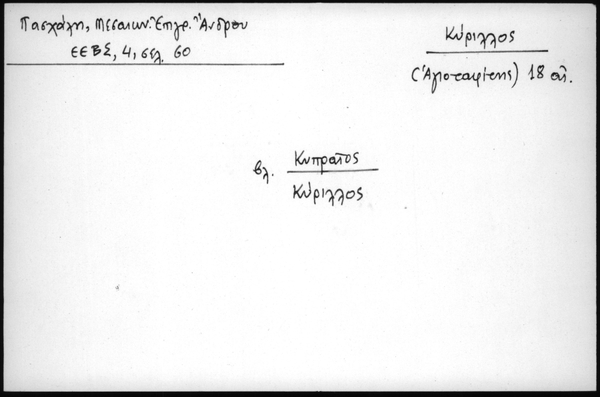 Πασχάλη, Μεσαιων. Ἐπιγρ. Ἄνδρου
ΕΕΒΣ, 4, σελ. 60
Κύριλλος
(Ἁγιοταφίτης) 18 αἰ.
βλ. Κυπραῖος
Κύριλλος